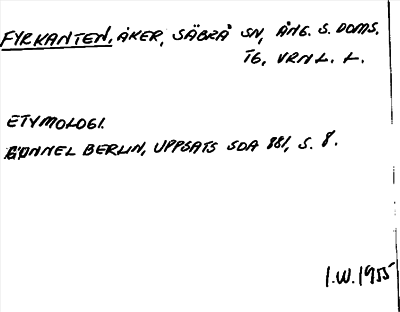 FYRKANTEN, ÅKER, SÄBRÅ SN, ÅNG. S. DOMS.
TG, VRNL. L.
ETYMOLOGI.
GUNNEL BERLIN, UPPSATS SOA 881, S. 8.
I.W. 1955